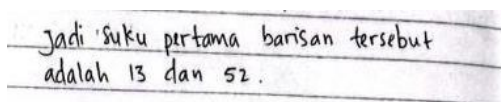 Jadi suku pertama barisan tersebut
adalah 13 dan 52.